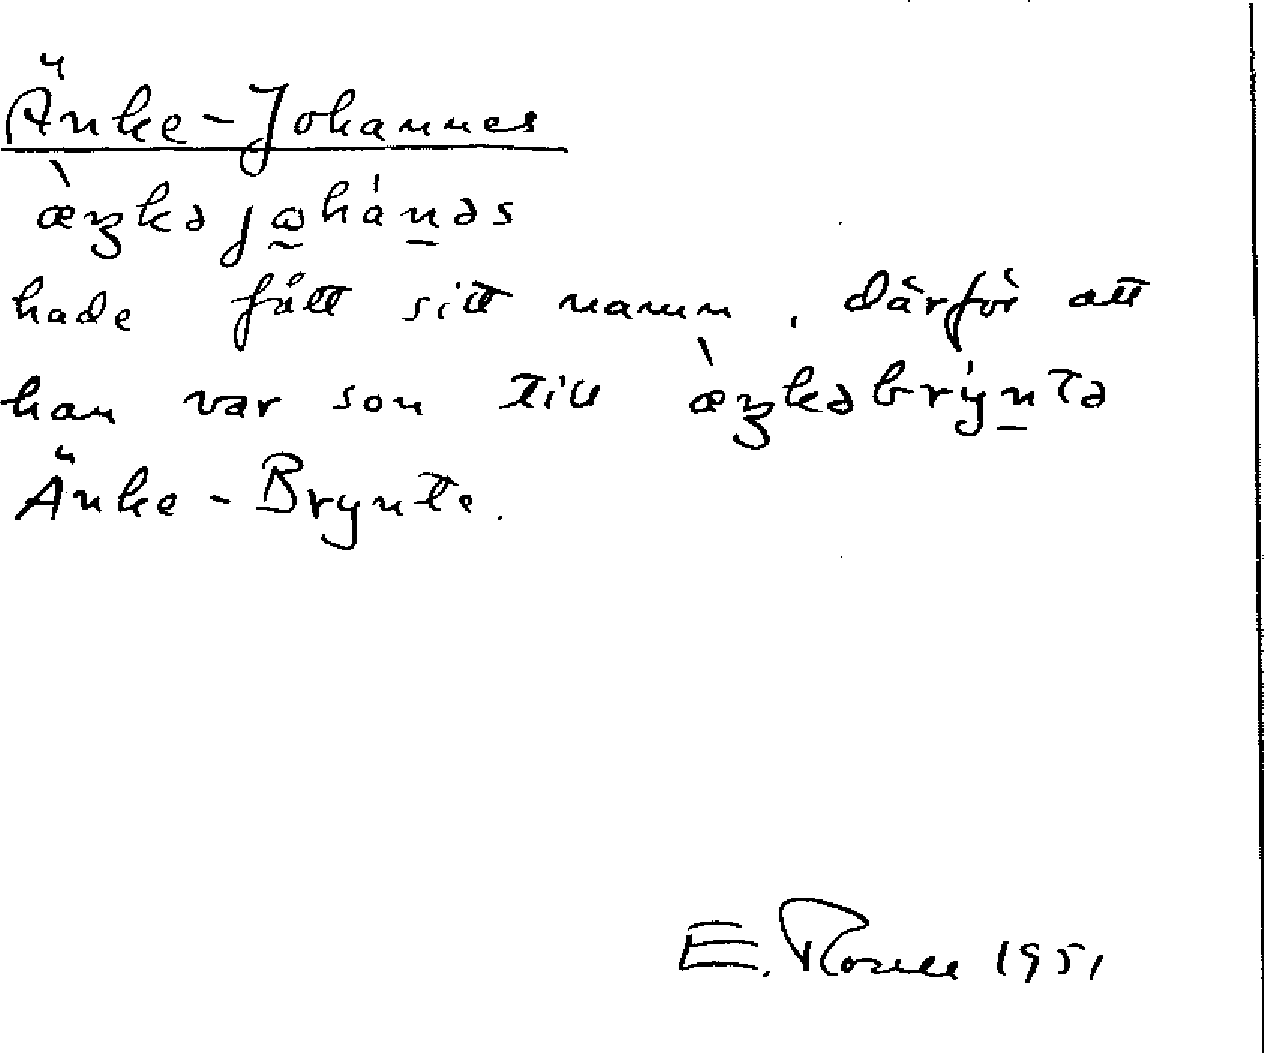 Änke-Johannes
æ̀ŋkə jωhánəs
hade fått sitt namn, därför att
han var son till æ̀ŋkəbrýntə
Änke-Brynte.
E. 1951